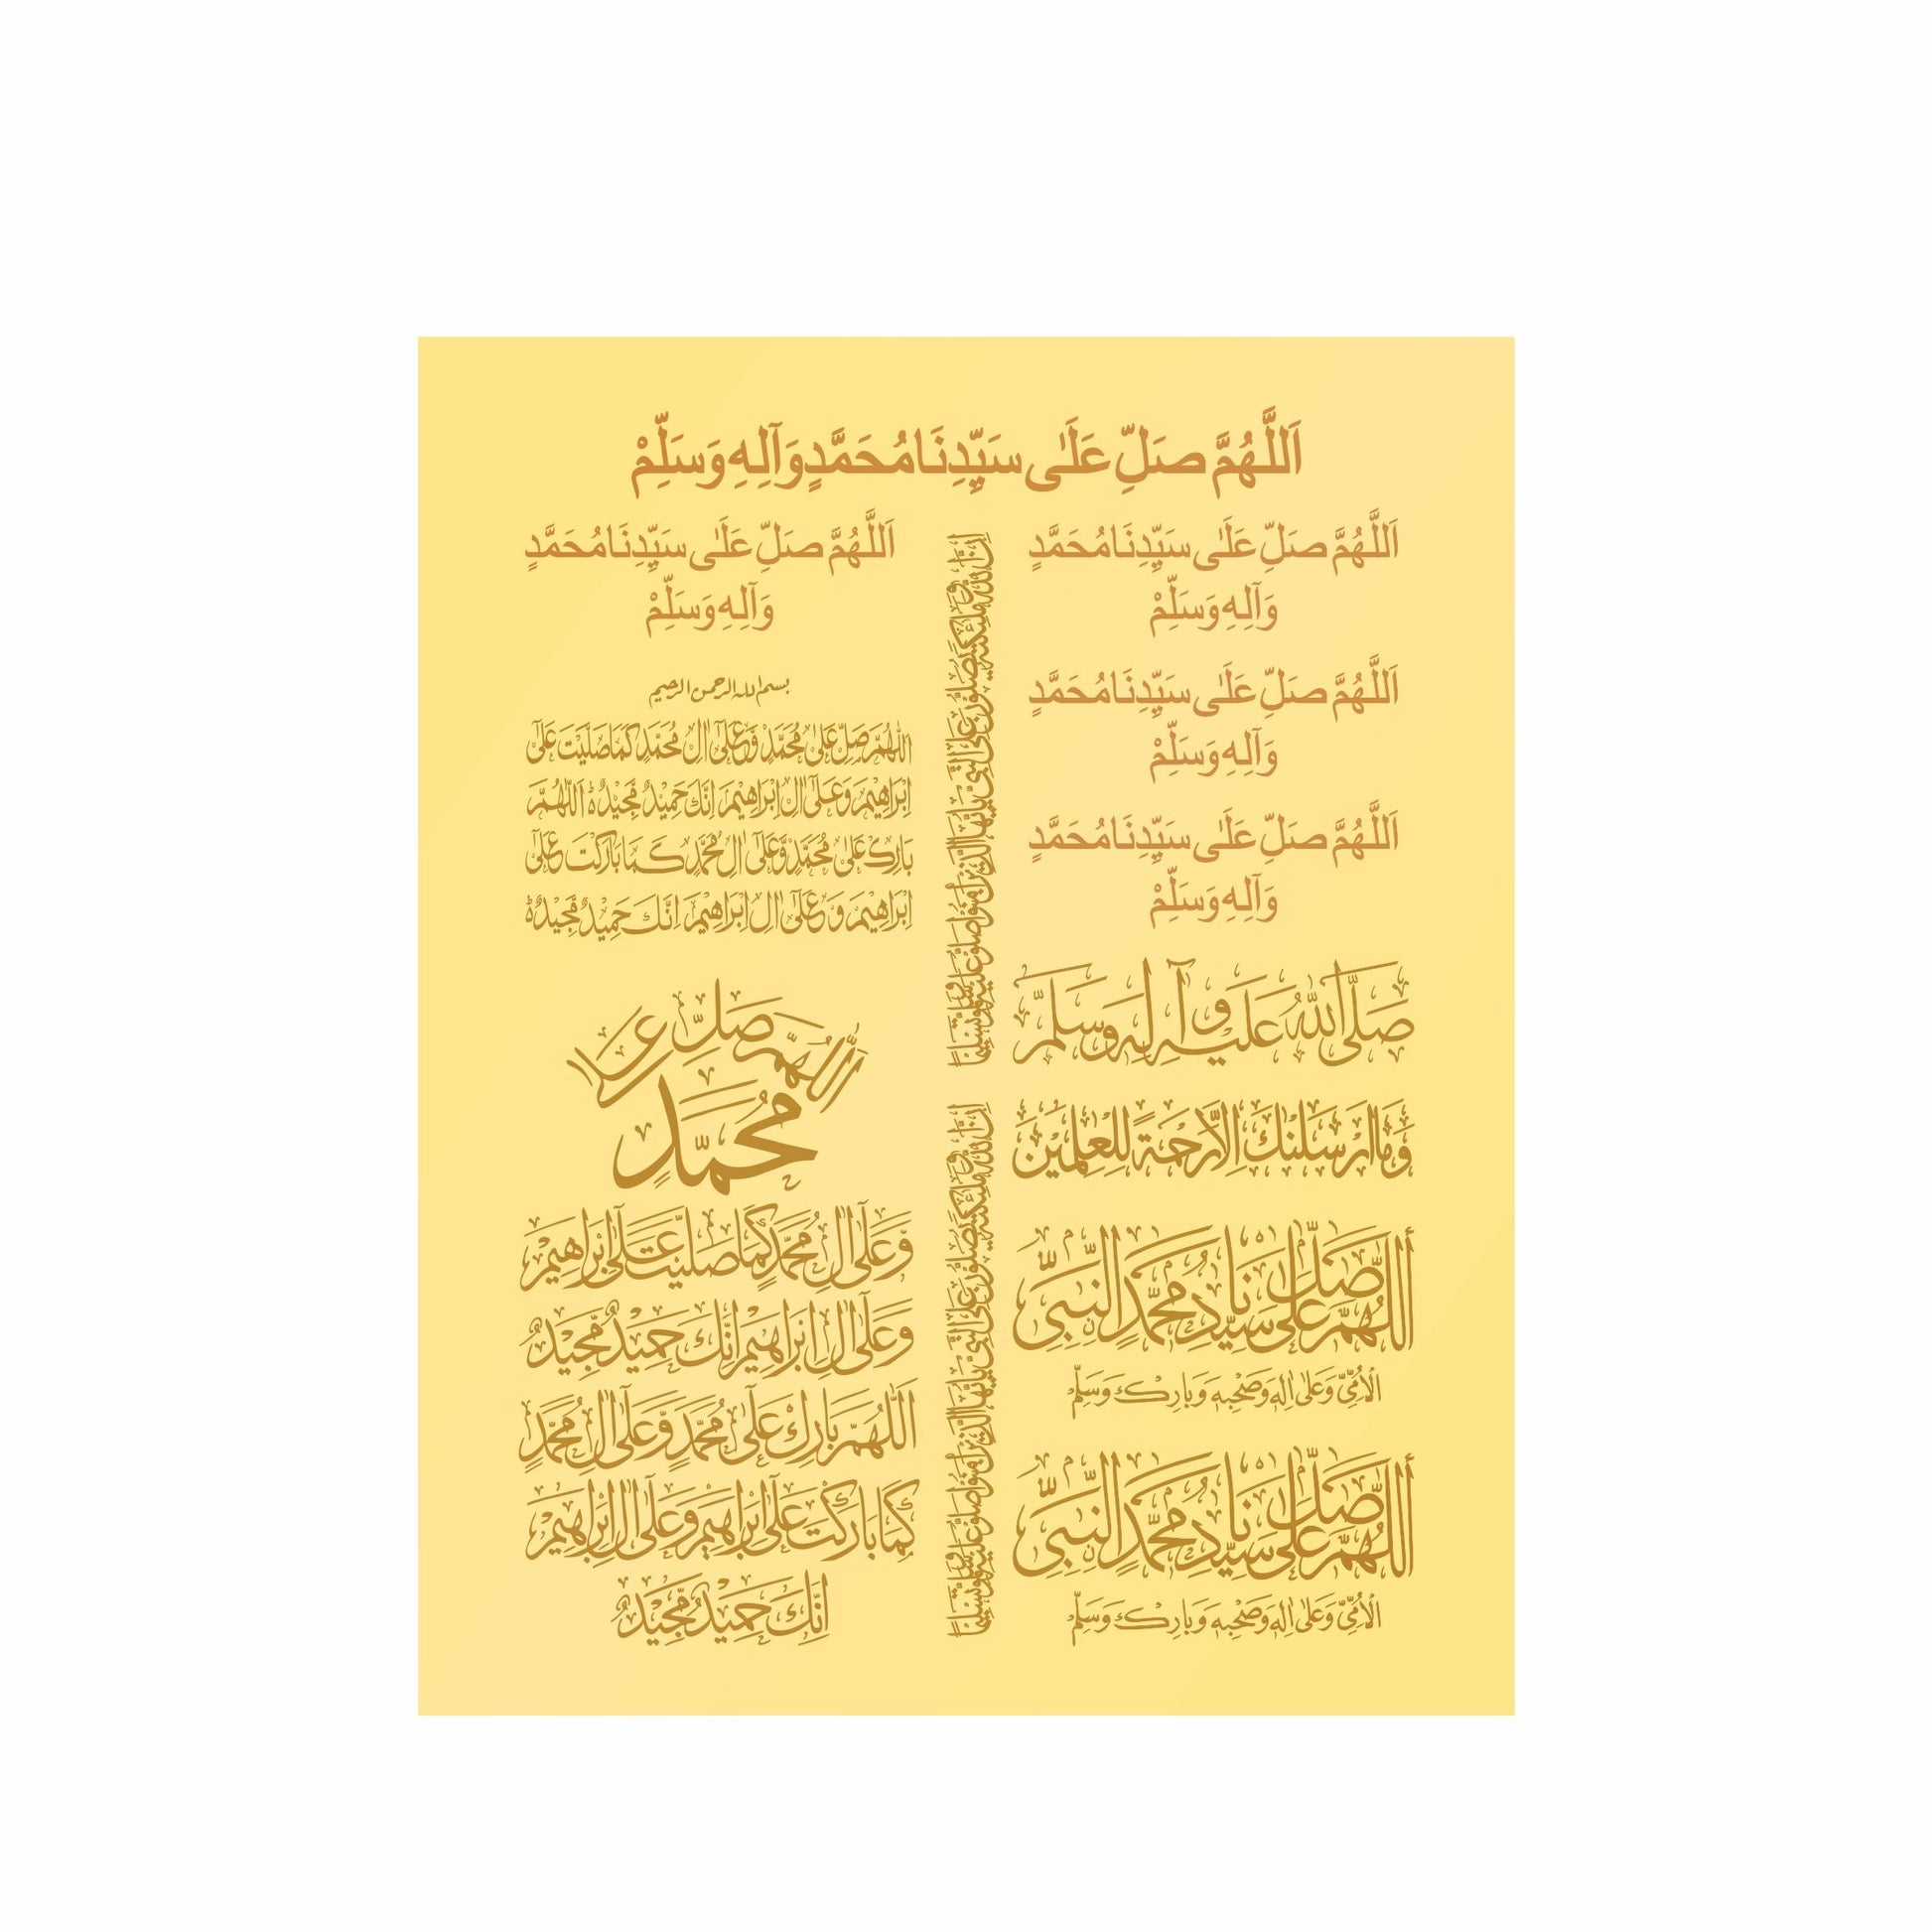 اَللَّهُمَّ صَلِّ عَلَىٰ سَيِّدِنَا مُحَمَّدٍ وَآلِهِ وَسَلِّمْ
اَللَّهُمَّ صَلِّ عَلَىٰ سَيِّدِنَا مُحَمَّدٍ
وَآلِهِ وَسَلِّمْ
اَللَّهُمَّ صَلِّ عَلَىٰ سَيِّدِنَا مُحَمَّدٍ
وَآلِهِ وَسَلِّمْ
اَللَّهُمَّ صَلِّ عَلَىٰ سَيِّدِنَا مُحَمَّدٍ
وَآلِهِ وَسَلِّمْ
صَلَّى اللهُ عَلَيْهِ وَآلِهِ وَسَلَّمَ
وَمَا اَرْسَلْنٰكَ اِلَّا رَحْمَةً لِّلْعٰلَمِيْنَ
أَللّٰهُمَّ صَلِّ عَلٰى سَيِّدِنَا مُحَمَّدٍ النَّبِيِّ
الْاُمِّيِّ وَعَلٰى اٰلِهٖ وَصَحْبِهٖ وَبَارِكْ وَسَلِّمْ
أَللّٰهُمَّ صَلِّ عَلٰى سَيِّدِنَا مُحَمَّدٍ النَّبِيِّ
الْاُمِّيِّ وَعَلٰى اٰلِهٖ وَصَحْبِهٖ وَبَارِكْ وَسَلِّمْ
اِنَّ اللهَ وَمَلٰٓئِكَتَهٗ يُصَلُّوْنَ عَلَى النَّبِيِّ يٰٓاَيُّهَا الَّذِيْنَ اٰمَنُوْا صَلُّوْا عَلَيْهِ وَسَلِّمُوْا تَسْلِيْمًا
اِنَّ اللهَ وَمَلٰٓئِكَتَهٗ يُصَلُّوْنَ عَلَى النَّبِيِّ يٰٓاَيُّهَا الَّذِيْنَ اٰمَنُوْا صَلُّوْا عَلَيْهِ وَسَلِّمُوْا تَسْلِيْمًا
اَللَّهُمَّ صَلِّ عَلَىٰ سَيِّدِنَا مُحَمَّدٍ
وَآلِهِ وَسَلِّمْ
بسم الله الرحمن الرحيم
اَللّٰهُمَّ صَلِّ عَلٰى مُحَمَّدٍ وَّعَلٰٓى اٰلِ مُحَمَّدٍ كَمَا صَلَّيْتَ عَلٰٓى
اِبْرَاهِيْمَ وَعَلٰٓى اٰلِ اِبْرَاهِيْمَ اِنَّكَ حَمِيْدٌ مَّجِيْدٌ ؕ اَللّٰهُمَّ
بَارِكْ عَلٰى مُحَمَّدٍ وَّعَلٰٓى اٰلِ مُحَمَّدٍ كَمَا بَارَكْتَ عَلٰٓى
اِبْرَاهِيْمَ وَعَلٰٓى اٰلِ اِبْرَاهِيْمَ اِنَّكَ حَمِيْدٌ مَّجِيْدٌ ؕ
اَللّٰهُمَّ صَلِّ عَلٰى
مُحَمَّدٍ
وَّعَلٰٓى اٰلِ مُحَمَّدٍ كَمَا صَلَّيْتَ عَلٰٓى اِبْرَاهِيْمَ
وَعَلٰٓى اٰلِ اِبْرَاهِيْمَ اِنَّكَ حَمِيْدٌ مَّجِيْدٌ
اَللّٰهُمَّ بَارِكْ عَلٰى مُحَمَّدٍ وَّعَلٰٓى اٰلِ مُحَمَّدٍ
كَمَا بَارَكْتَ عَلٰٓى اِبْرَاهِيْمَ وَعَلٰٓى اٰلِ اِبْرَاهِيْمَ
اِنَّكَ حَمِيْدٌ مَّجِيْدٌ